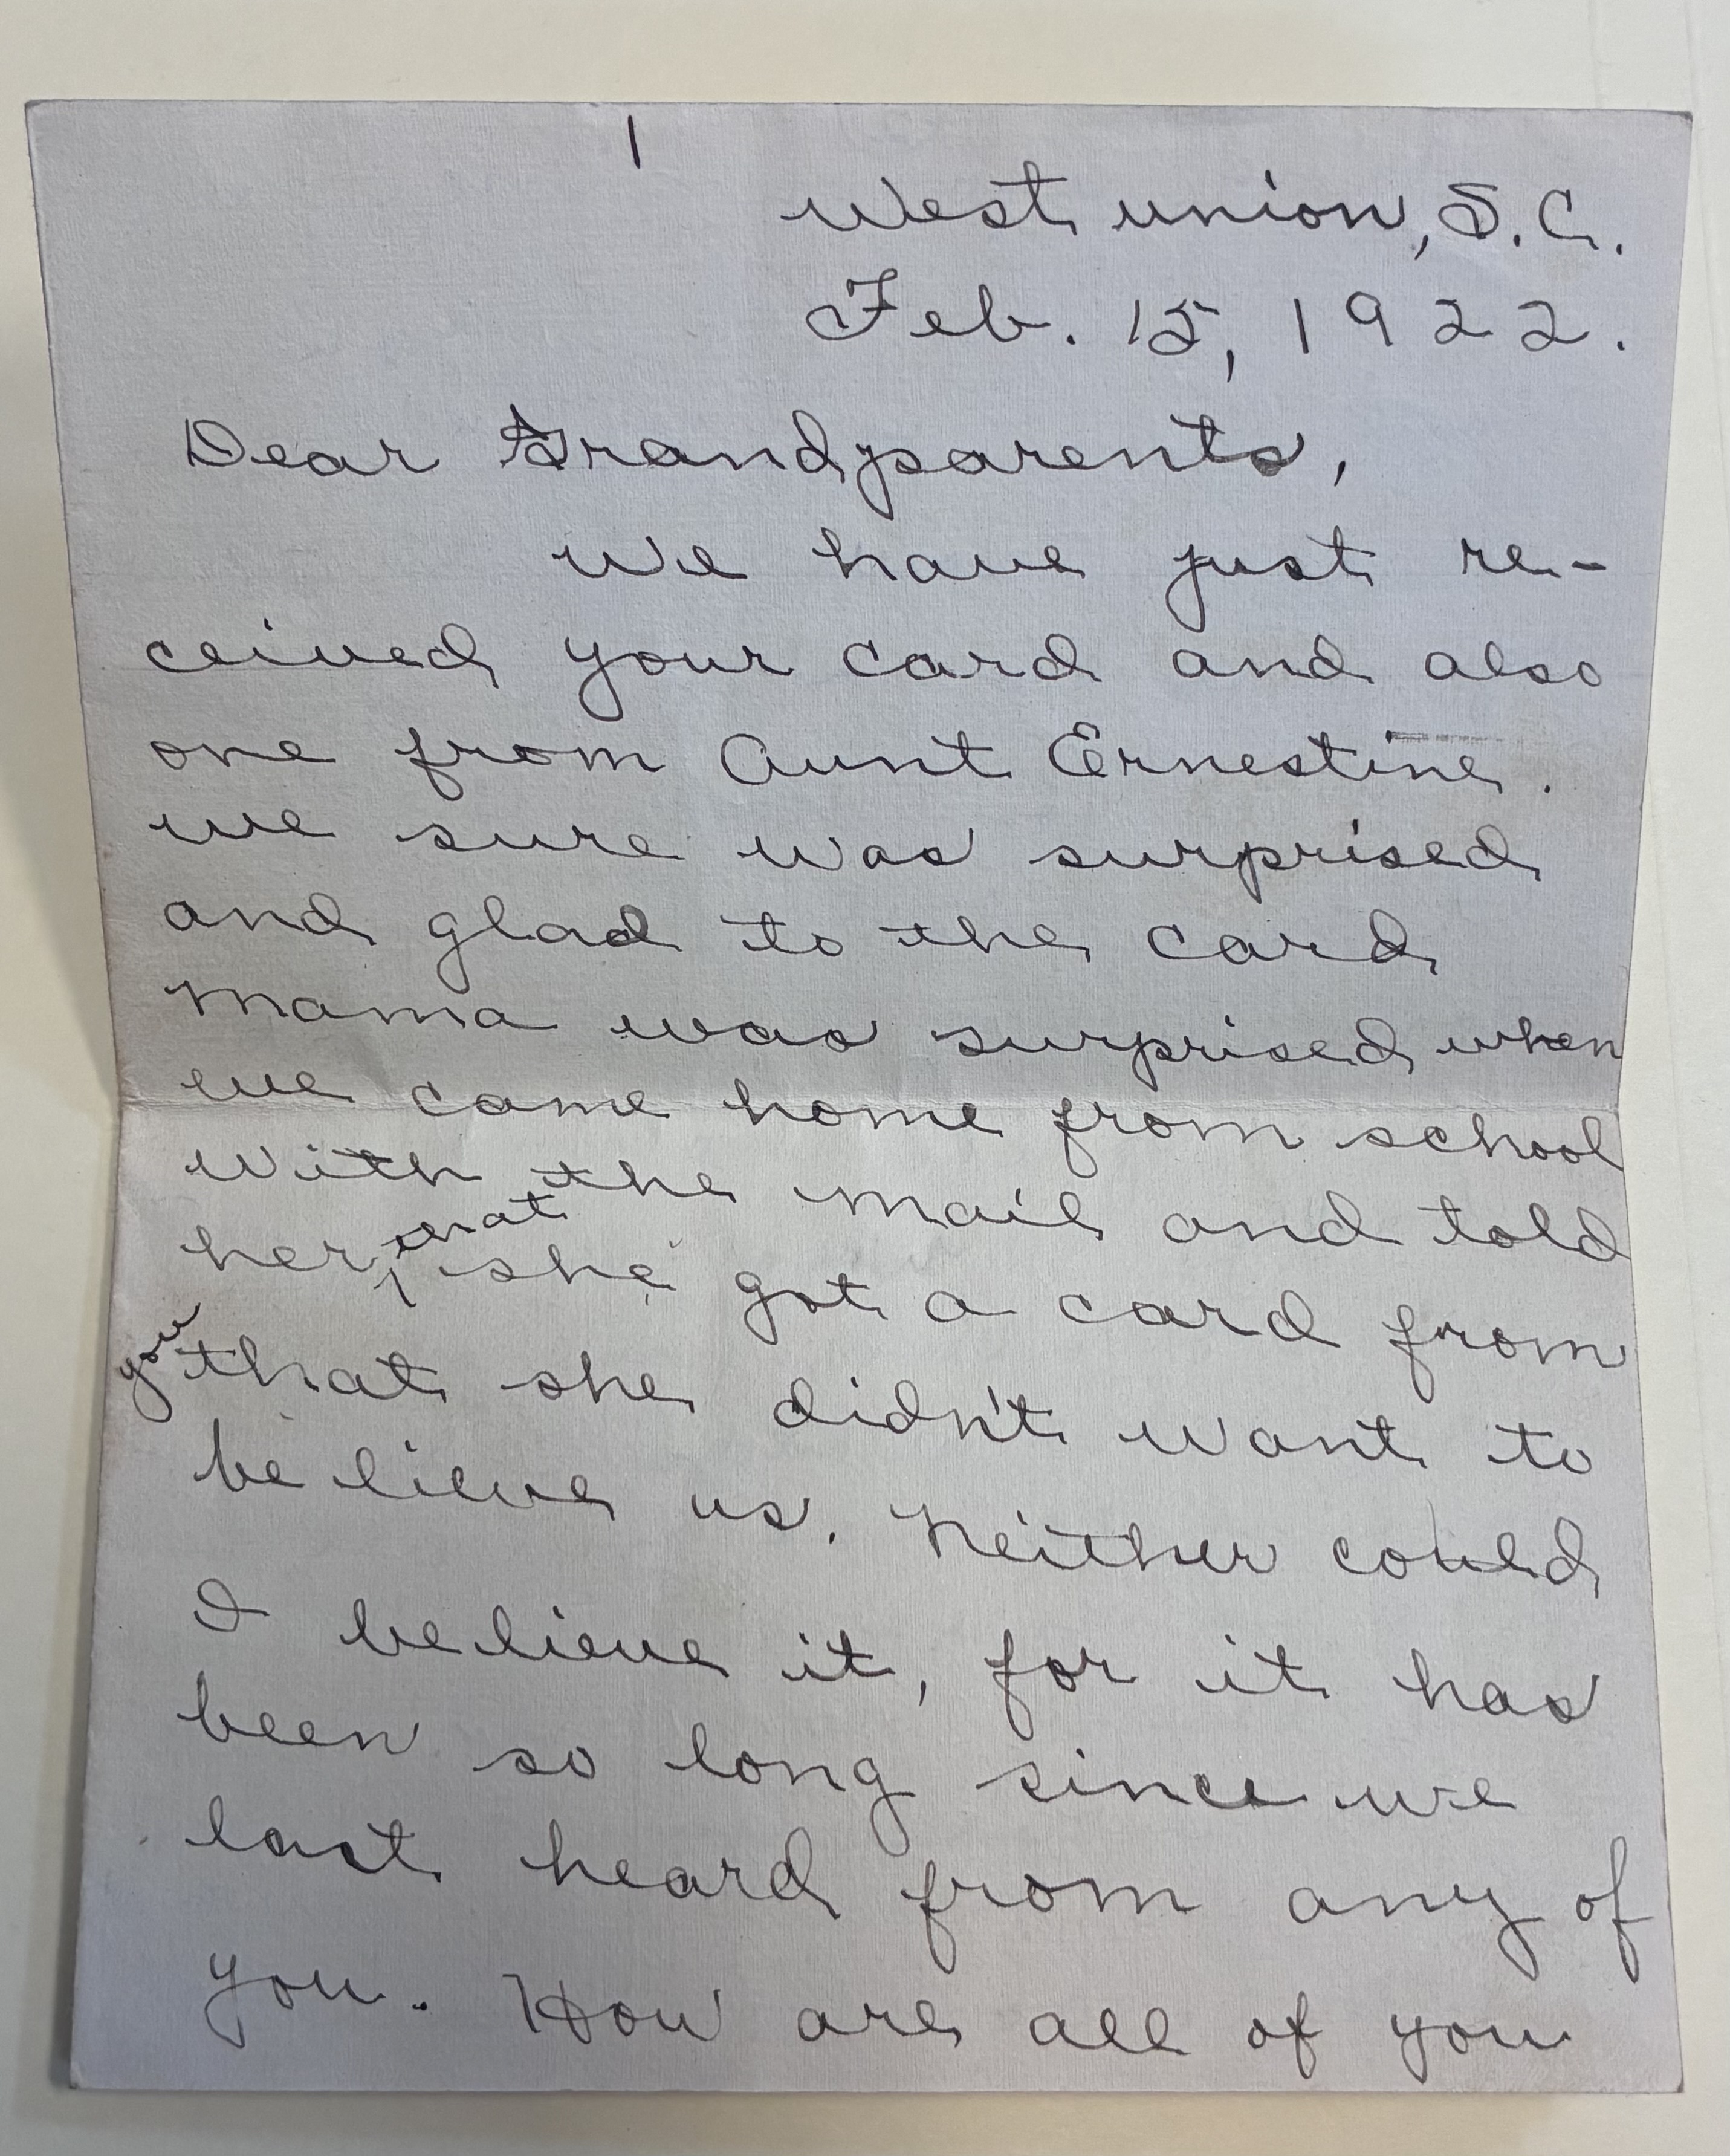 1
West union, S.C.
Feb. 15, 1922.
Dear Grandparents,
We have just re-
ceived your card and also
one from Aunt Ernestine.
we sure was surprised
and glad to the card
Mama was surprised when
we came home from school
with the mail and told
her, that she got a card from
you that she didn't want to
be lieve us. Neither could
I believe it, for it has
been so long since we
last heard from any of
you. How are all of you